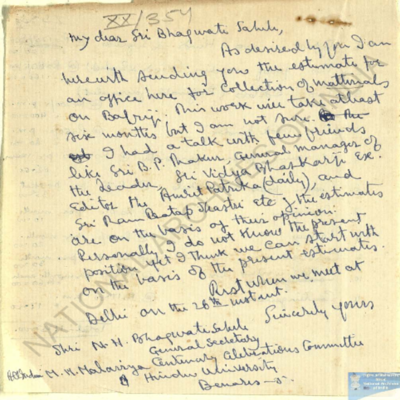 XX/354
My dear Sri Bhagwati Sahib,
As desired by you I am
herewith sending you the estimate for
an office here for collection of materials
on Babuji. This work will take at least
six months but I am not sure.
I had a talk with few friends
like Sri B.P. Thakur, General manager of
the Leader, Sri Vidya Bhaskarji Ex.
Editor the Amrit Patrika (daily), and
Sri Ram Pratap Shastri etc & the estimates
are on the basis of their opinion.
Personally I do not know the present
position yet I think we can start with
on the basis of the present estimates.
Rest when we meet at
Delhi on the 26th instant.
Sincerely yours
Shri N. N. Bhagwati Sahib
General Secretary
M. M. Malaviya Centenary Celebrations Committee
Hindu University
Benares-5.
NATIONAL